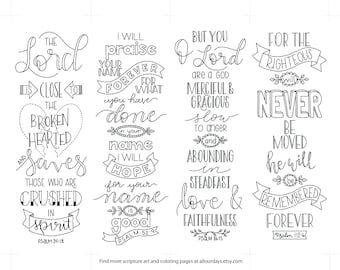 THE
Lord
IS
CLOSE
TO THE
BROKEN
HEARTED
AND
Saves
THOSE WHO ARE
CRUSHED
IN
spirit
PSALM 34:18
I WILL
praise
YOUR NAME
FOREVER
FOR WHAT
you have
done
in your
name
I WILL
HOPE
for your
name
is
good
PSALM 52:9
BUT YOU
O Lord
are a GOD
MERCIFUL &
GRACIOUS
slow
to anger
and
ABOUNDING
IN
STEADFAST
love &
FAITHFULNESS
PSALM 86:15
FOR THE
RIGHTEOUS
will
NEVER
BE
MOVED
he will
be
REMEMBERED
FOREVER
PSALM 112:6
Find more scripture art and coloring pages at allsundays.etsy.com